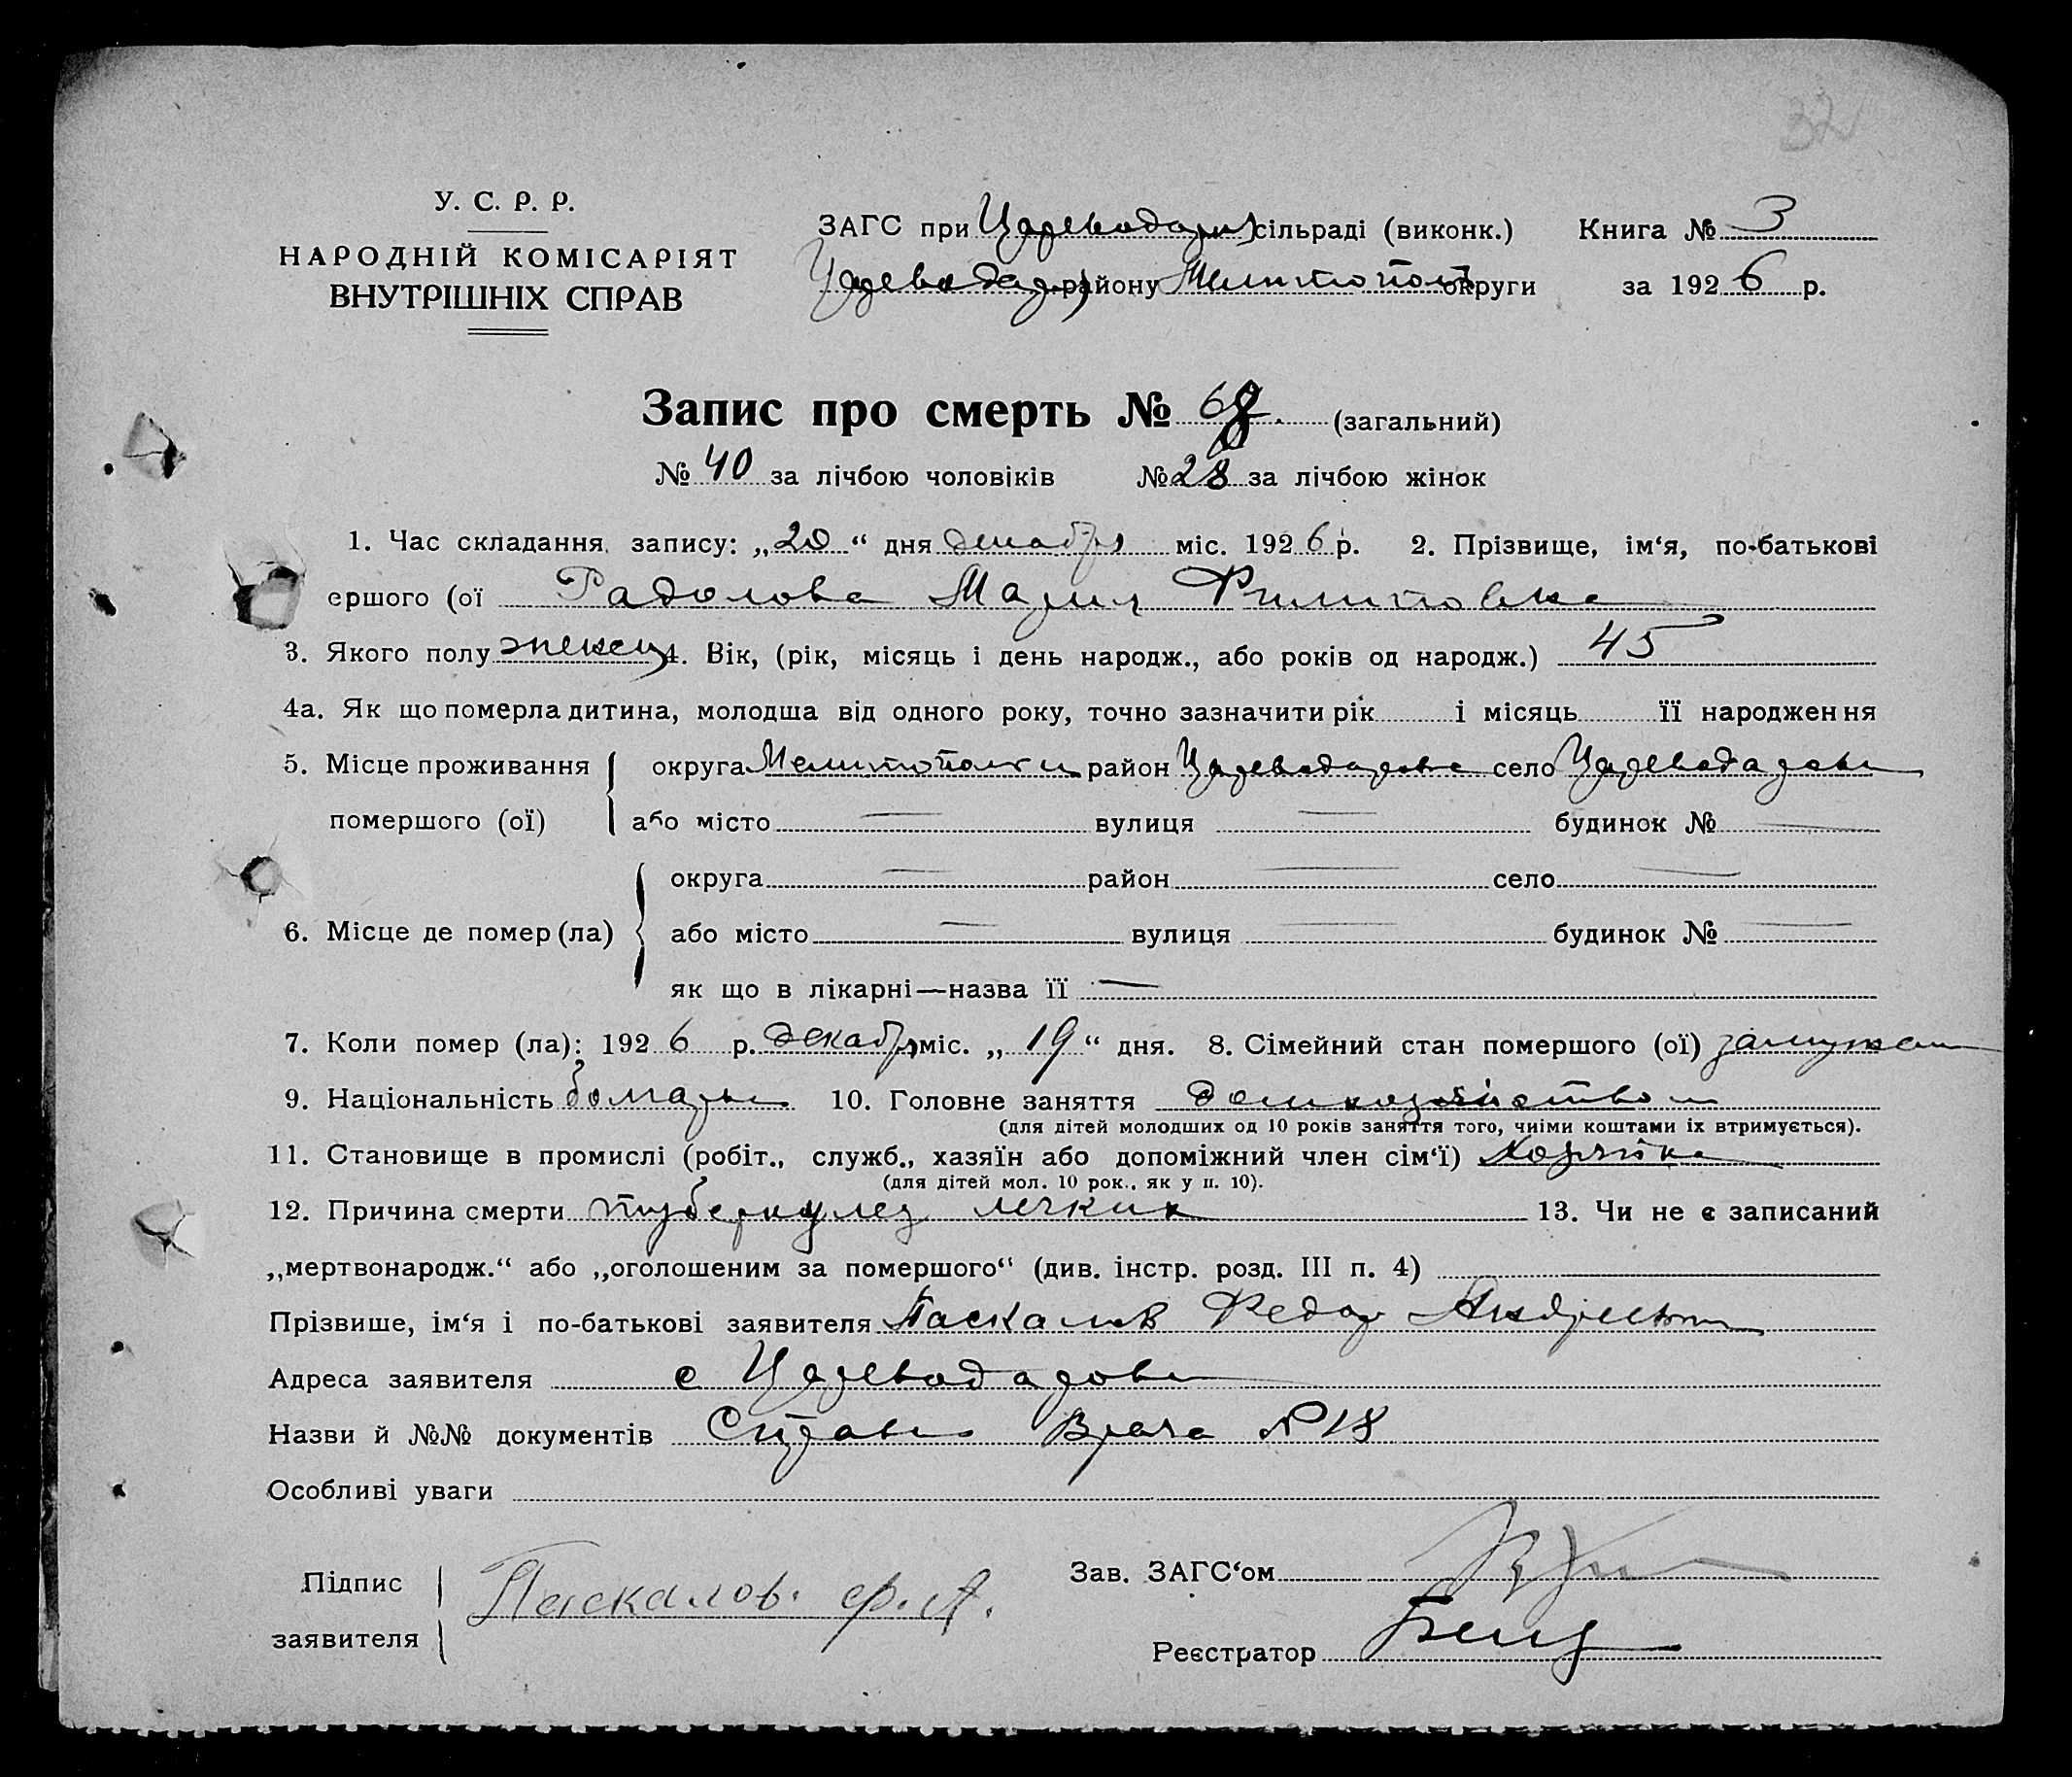 32
У. С. Р. Р.
НАРОДНІЙ КОМІСАРІЯТ
ВНУТРІШНІХ СПРАВ
ЗАГС при Цареводар сільраді (виконк.) Книга № 3
Цареводар району Мелитопол округи за 1926 р.
Запис про смерть № 68. (загальний)
№ 40 за лічбою чоловіків № 28 за лічбою жінок
1. Час складання запису: „20“ дня декабря міс. 1926 р. 2. Прізвище, ім‘я, по-батькові
ершого (ої Радолова Мария Филиповна
3. Якого полу женск 4. Вік, (рік, місяць і день народж., або років од народж.) 45
4а. Як що померла дитина, молодша від одного року, точно зазначити рік і місяць її народження
5. Місце проживання округа Мелитополь район Цареводарова село Цареводарова
помершого (ої) або місто — вулиця — будинок № —
округа — район — село —
6. Місце де помер (ла) або місто — вулиця — будинок № —
як що в лікарні—назва її —
7. Коли помер (ла): 1926 р. декабря міс. „19“ дня. 8. Сімейний стан помершого (ої) замужем
9. Національність болгары 10. Головне заняття домхозяйством
(для дітей молодших од 10 років заняття того, чиїми коштами їх втримується).
11. Становище в промислі (робіт., служб., хазяїн або допоміжний член сім‘ї) хозяйка
(для дітей мол. 10 рок., як у п. 10).
12. Причина смерти туберкулез легких 13. Чи не є записаний
„мертвонародж.“ або „оголошеним за помершого“ (див. інстр. розд. III п. 4)
Прізвише, ім‘я і по-батькові заявителя Паскалов Федор Андреевич
Адреса заявителя с Цареводарова
Назви й №№ документів Справка Врача № 18
Особливі уваги
Підпис Паскалов. Ф. А. Зав. ЗАГС‘ом
заявителя Реєстратор